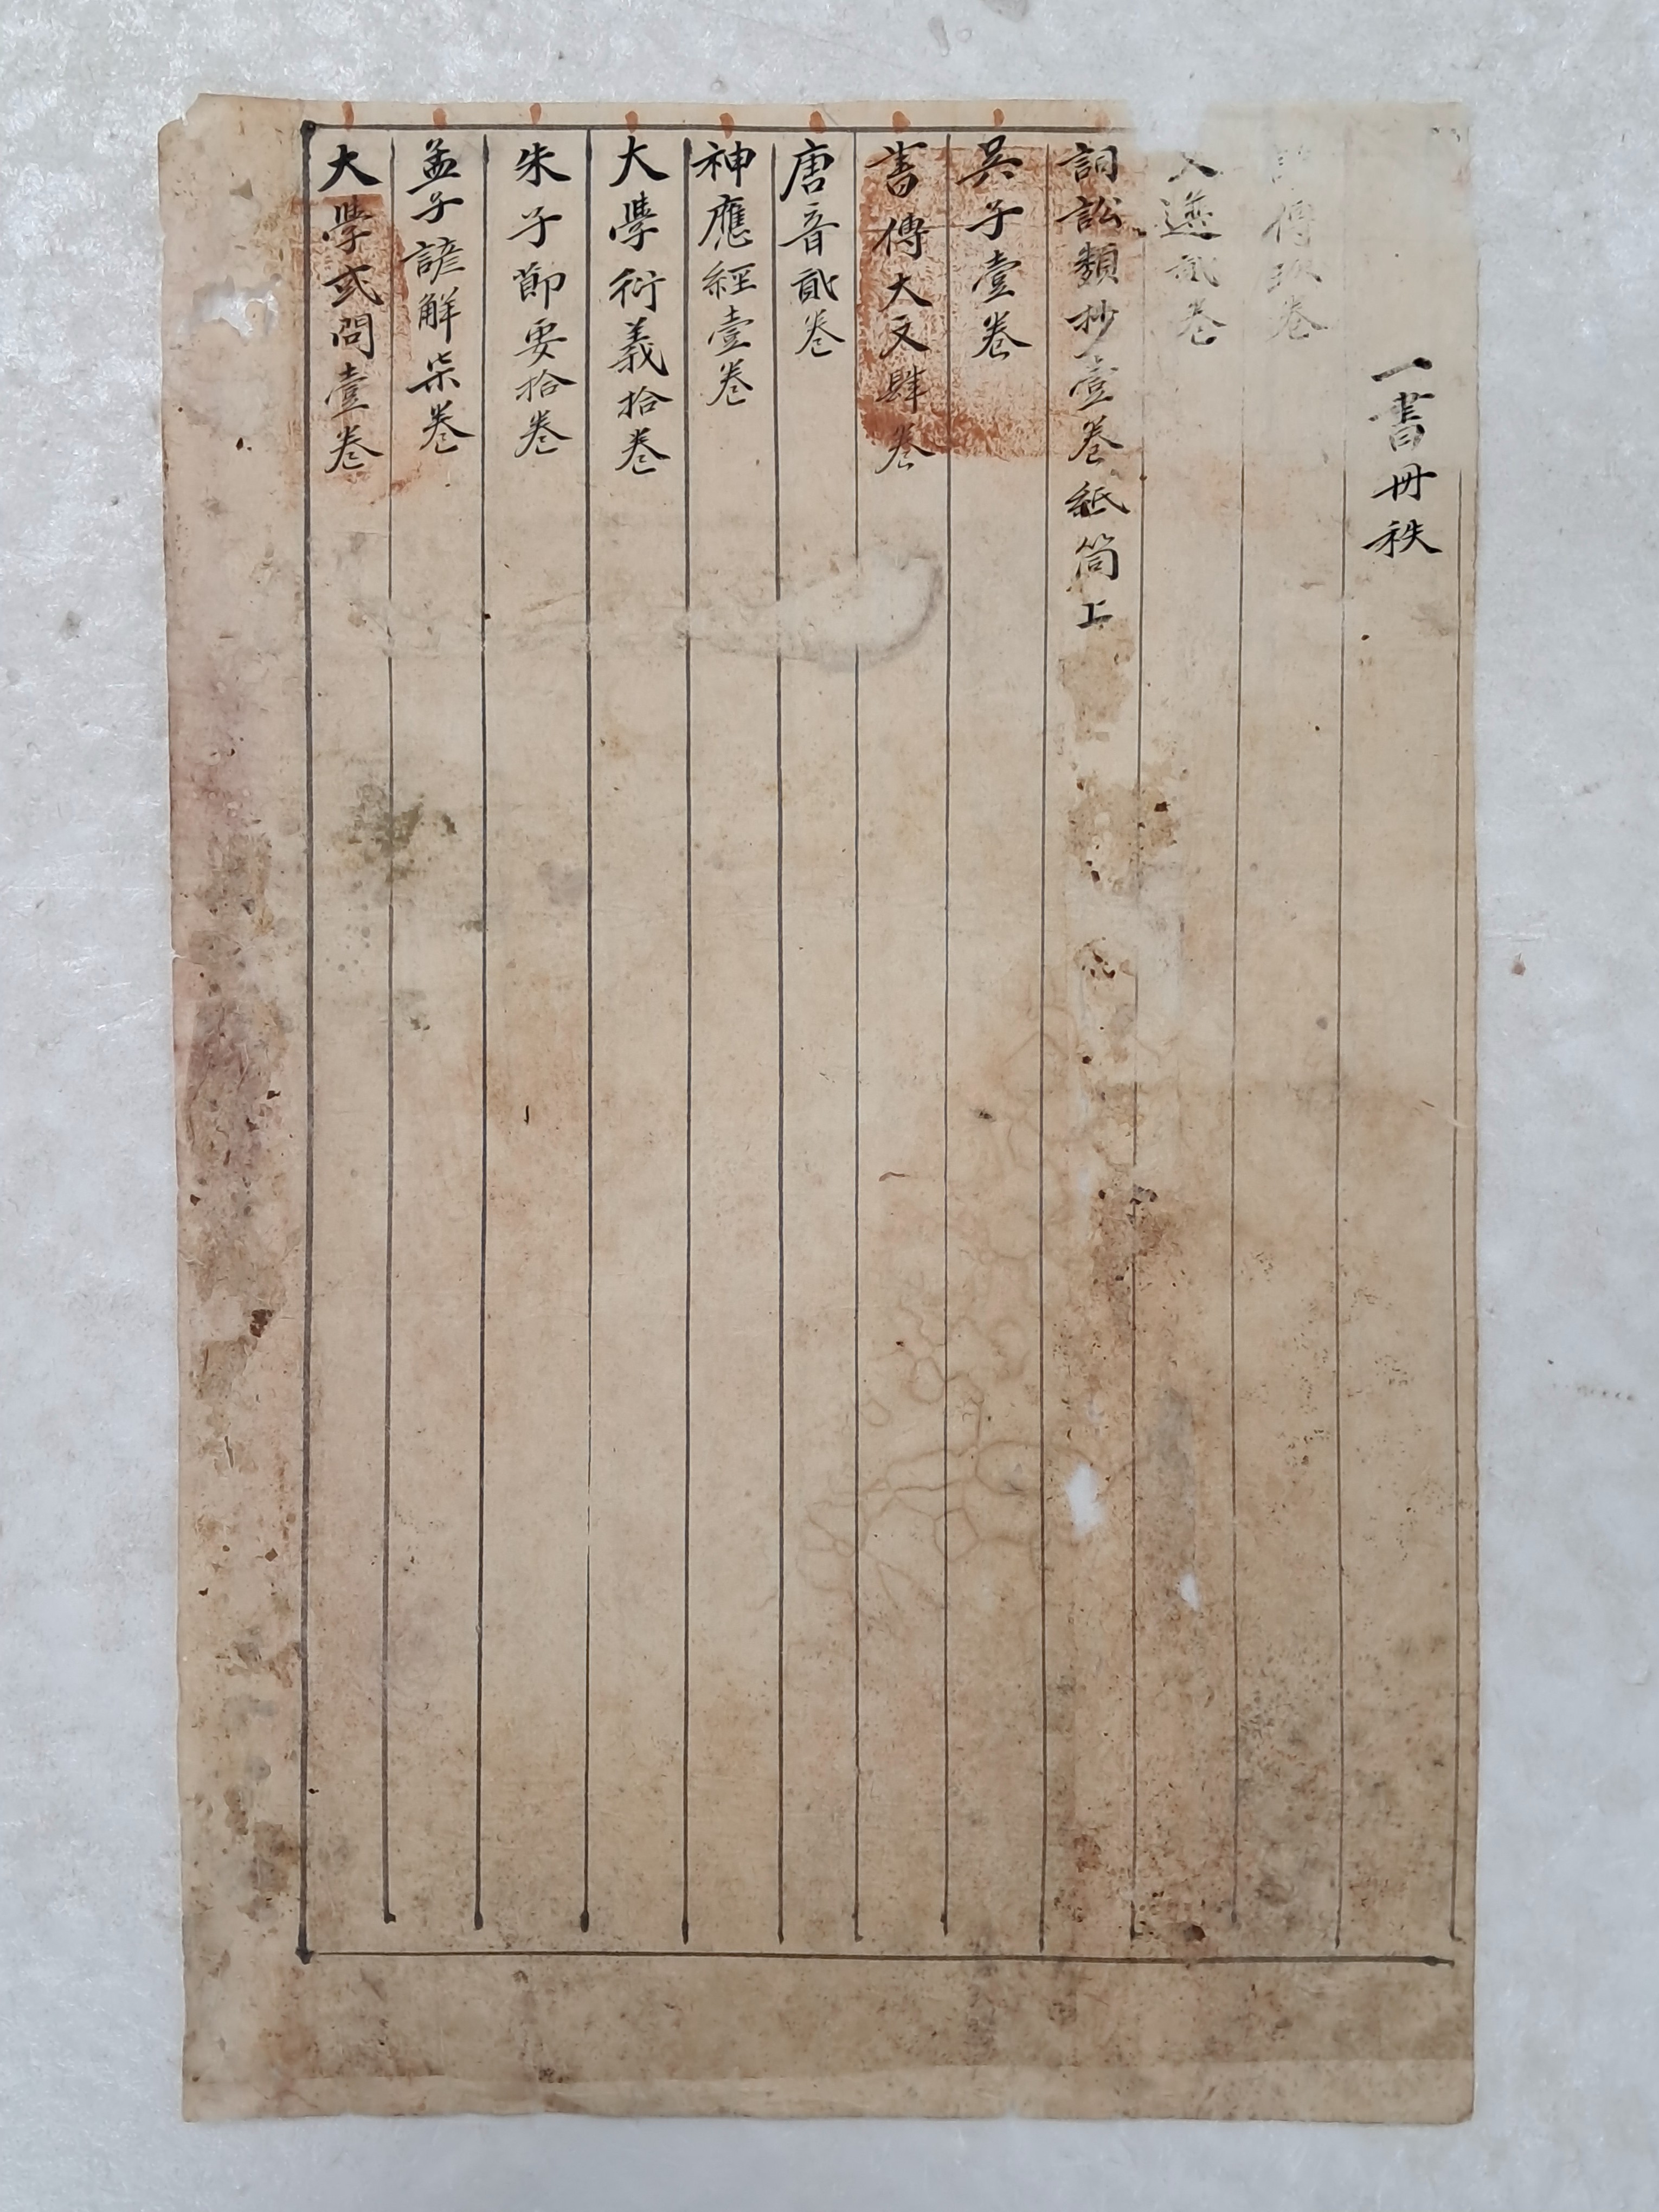 一書冊秩
傳 卷
貳卷
詞訟類抄壹卷紙筒上
吳子壹卷
書傳大文肆卷
唐音貳卷
神應經壹卷
大學衍義拾卷
朱子節要拾卷
孟子諺解柒卷
大學或問壹卷